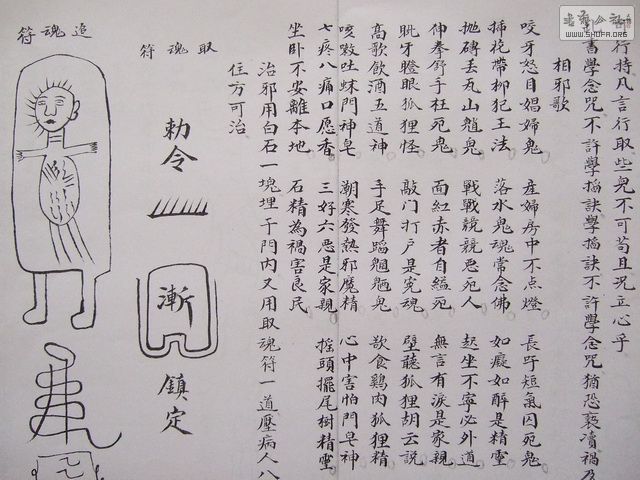 行持凡言行取些兒不可苟且况立心乎
書學念咒不許學掐訣學掐訣不許學念咒猶恐褻凟禍及
相邪歌
咬牙怒目娼婦鬼 產婦房中不点燈 長吁短氣囚死鬼
掃梳帶柳犯王法 落水鬼魂常念佛 如癡如醉是精靈
拋磚丢瓦山魈鬼 戰戰競競惡死人 起坐不寧必外道
伸拳舒手枉死鬼 面紅赤者自縊死 無言有淚是家親
眦牙瞪眼狐狸怪 敲门打户是寃魂 壁聽狐狸胡云說
高歌飲酒五道神 手足舞蹈魍魎鬼 飲食鷄肉狐狸精
咳嗽吐蛛門神皂 潮寒發熱邪魔精 心中害怕門皂神
七疼八痛口愿香 三好六恶是家親 搖頭擺尾樹精靈
坐卧不安離本地 石精為禍害良民
治邪用白石一塊埋于門内又用取魂符一道壓病人八
住方可治
取魂符
勅令
漸
鎮定
追魂符
书法公社
WWW.SHUFA.ORG